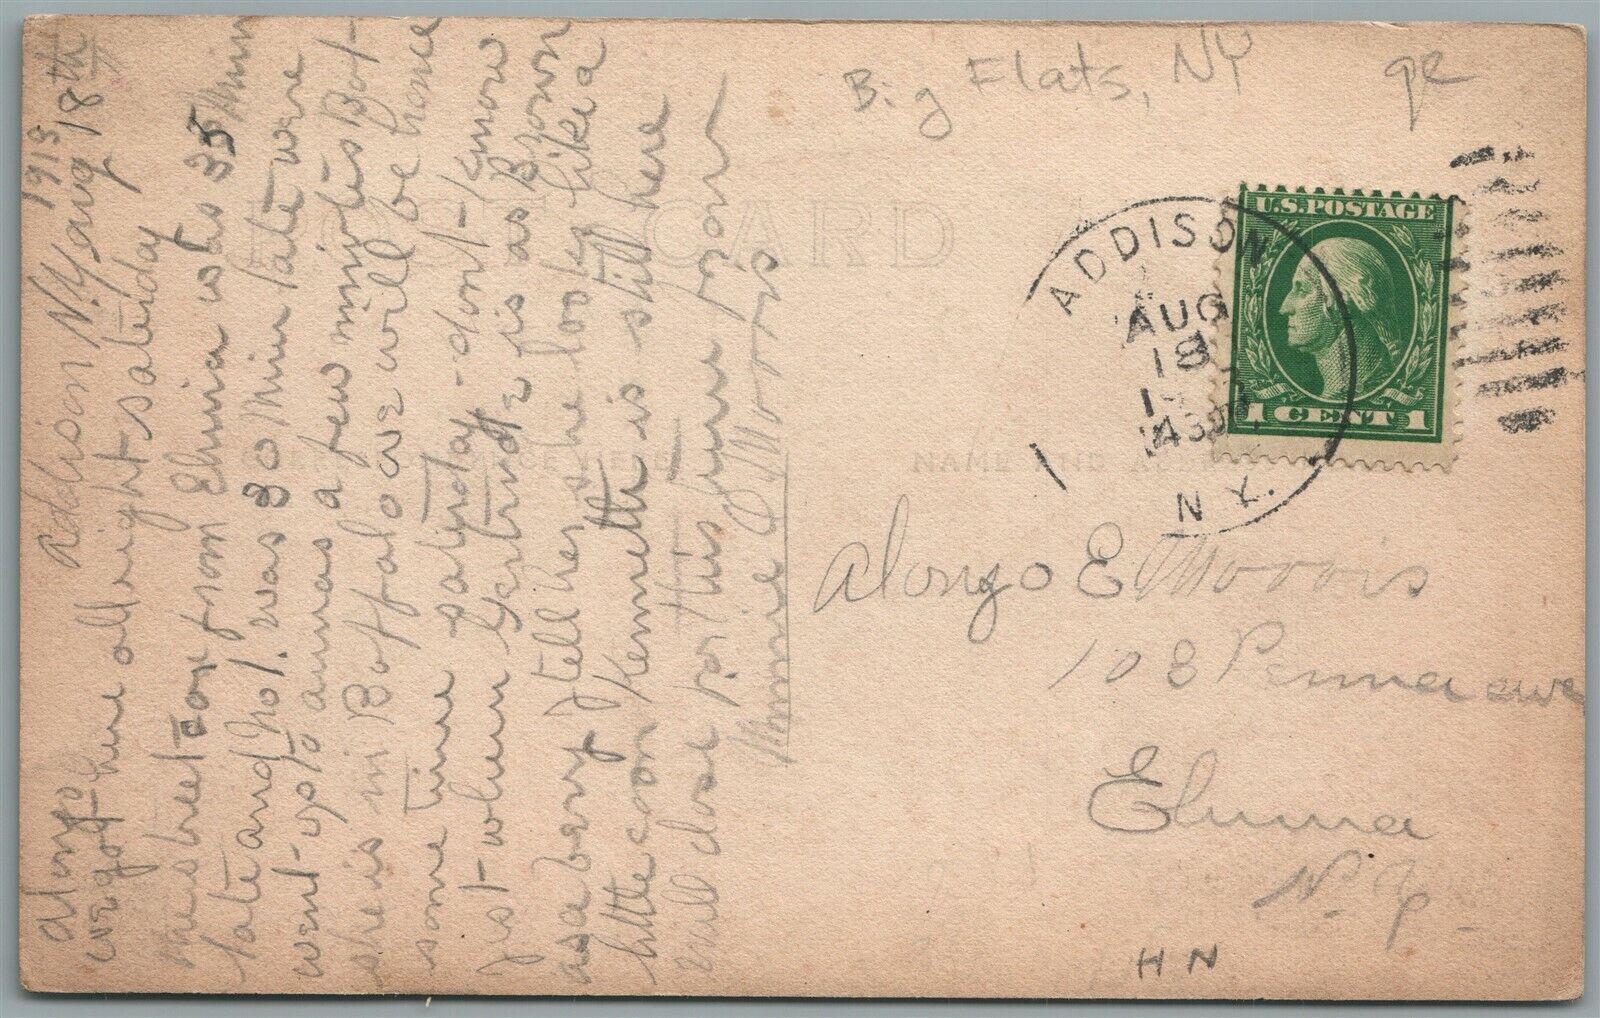 Addison N.Y. aug 18th
1913
Alonzo
we got here all right saturday
the street car from Elmira was 35 min
late and No 1. was 30 Min late we
went up to annas a few minutes Bot-
she is in Buffalo we will be home
some time satirday - dont - know
Just - when Gertrude is as Brown
as a bery I tell her she looks like a
little coon Kenneth is still here
will close for this time your
Minnie E Morris
Big Flats, NY
POST CARD
NAME AND ADDRESS
ADDISON
AUG
18
N.Y.
U.S. POSTAGE
1 CENT 1
Alonzo E Morris
108 Penna ave
Elmira
N. Y.
H N